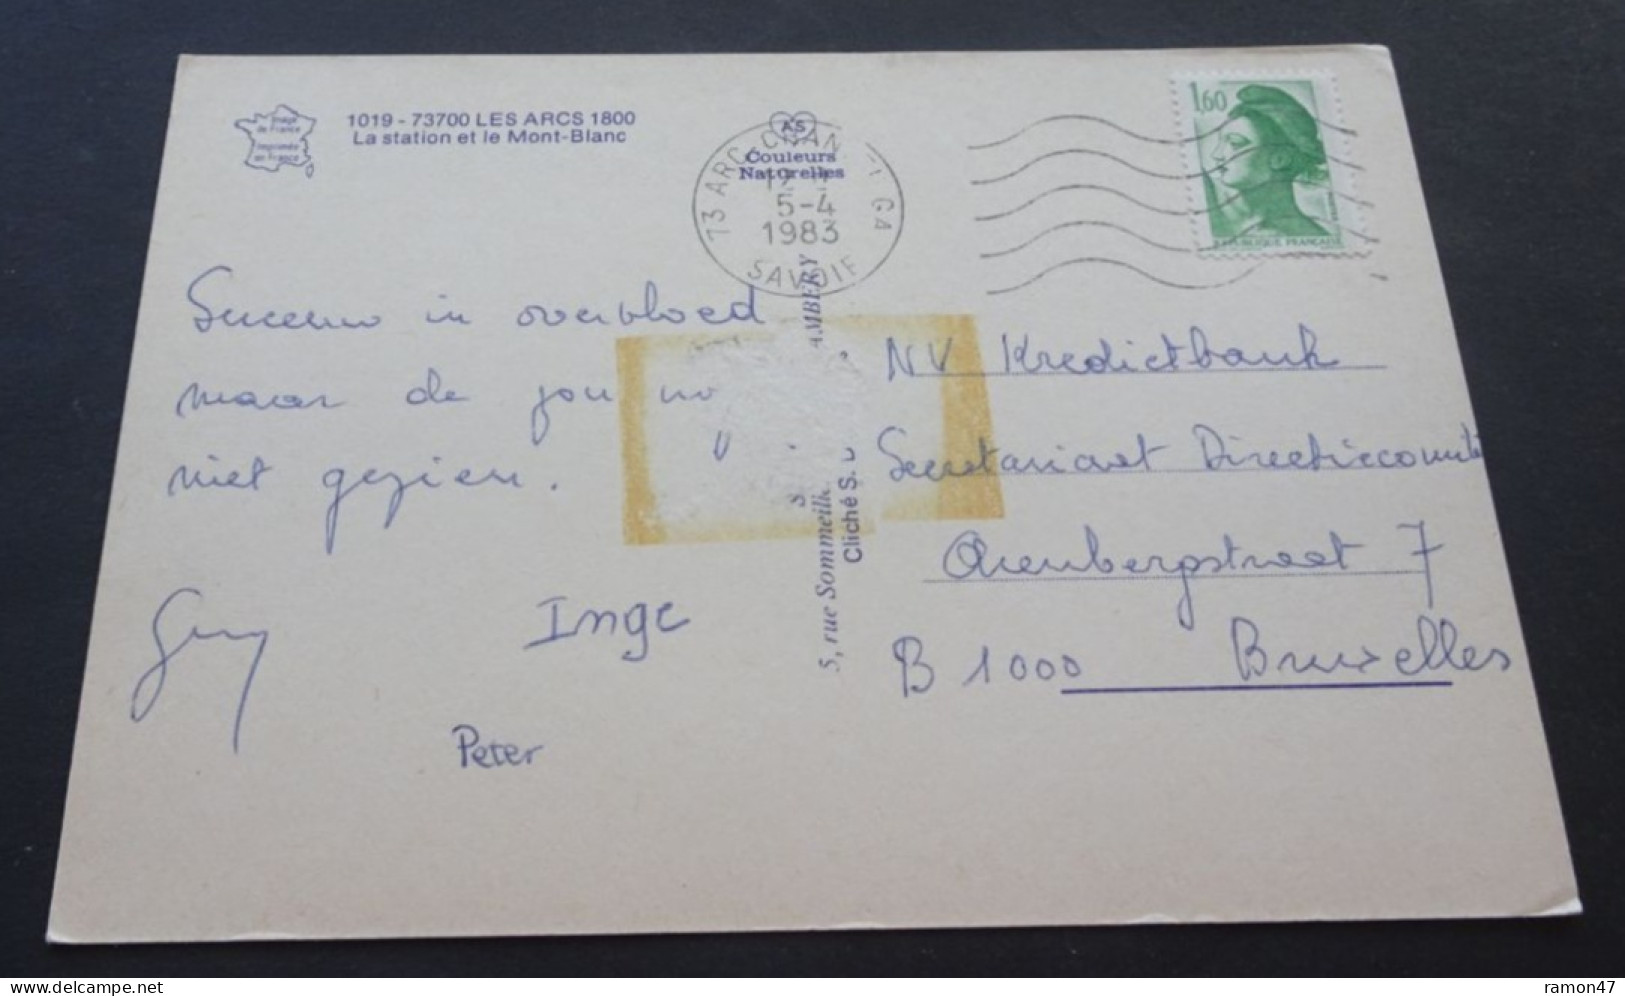 Image
de France
Imprimée
en France
1019 - 73700 LES ARCS 1800
La station et le Mont-Blanc
AS
Couleurs
Naturelles
73 ARC-CHAN
5-4
1983
SAVOIE
1,60
REPUBLIQUE FRANÇAISE
in overvloed
maar de
niet gezien.
Guy
Inge
Peter
5, rue Sommeill
Cliché S.
NV Kredietbank
Secretariaat Directiecomité
Arenbergstraat 7
B 1000 Bruxelles
ramon47